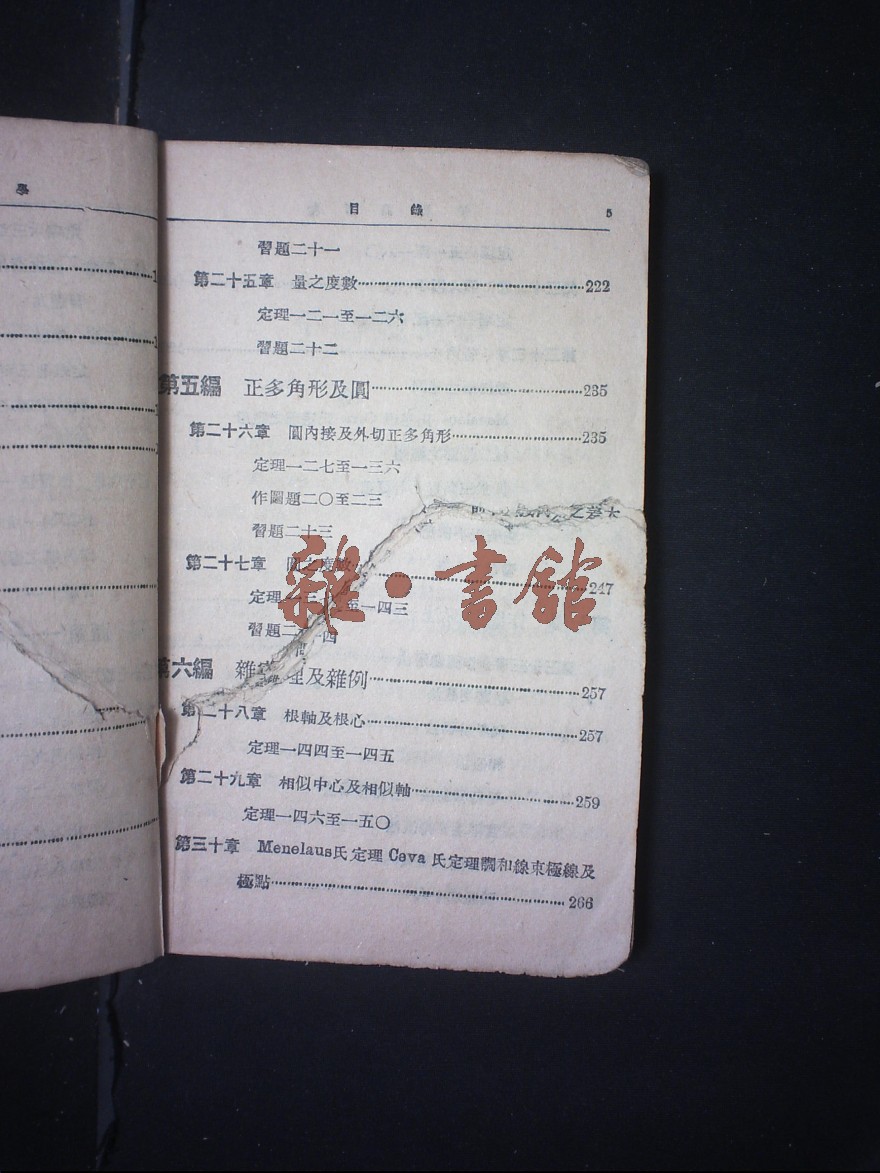 學
目錄 5
習題二十一
第二十五章 量之度數 222
定理一二一至一二六
習題二十二
第五編 正多角形及圓 235
第二十六章 圓內接及外切正多角形 235
定理一二七至一三六
作圖題二〇至二三
習題二十三
第二十七章 圓之度數 247
定理一三 至一四三
習題二 四
第六編 雜 理及雜例 257
第二十八章 根軸及根心 257
定理一四四至一四五
第二十九章 相似中心及相似軸 259
定理一四六至一五〇
第三十章 Menelaus氏定理 Ceva 氏定理調和線束極線及
極點 266
雜·書館